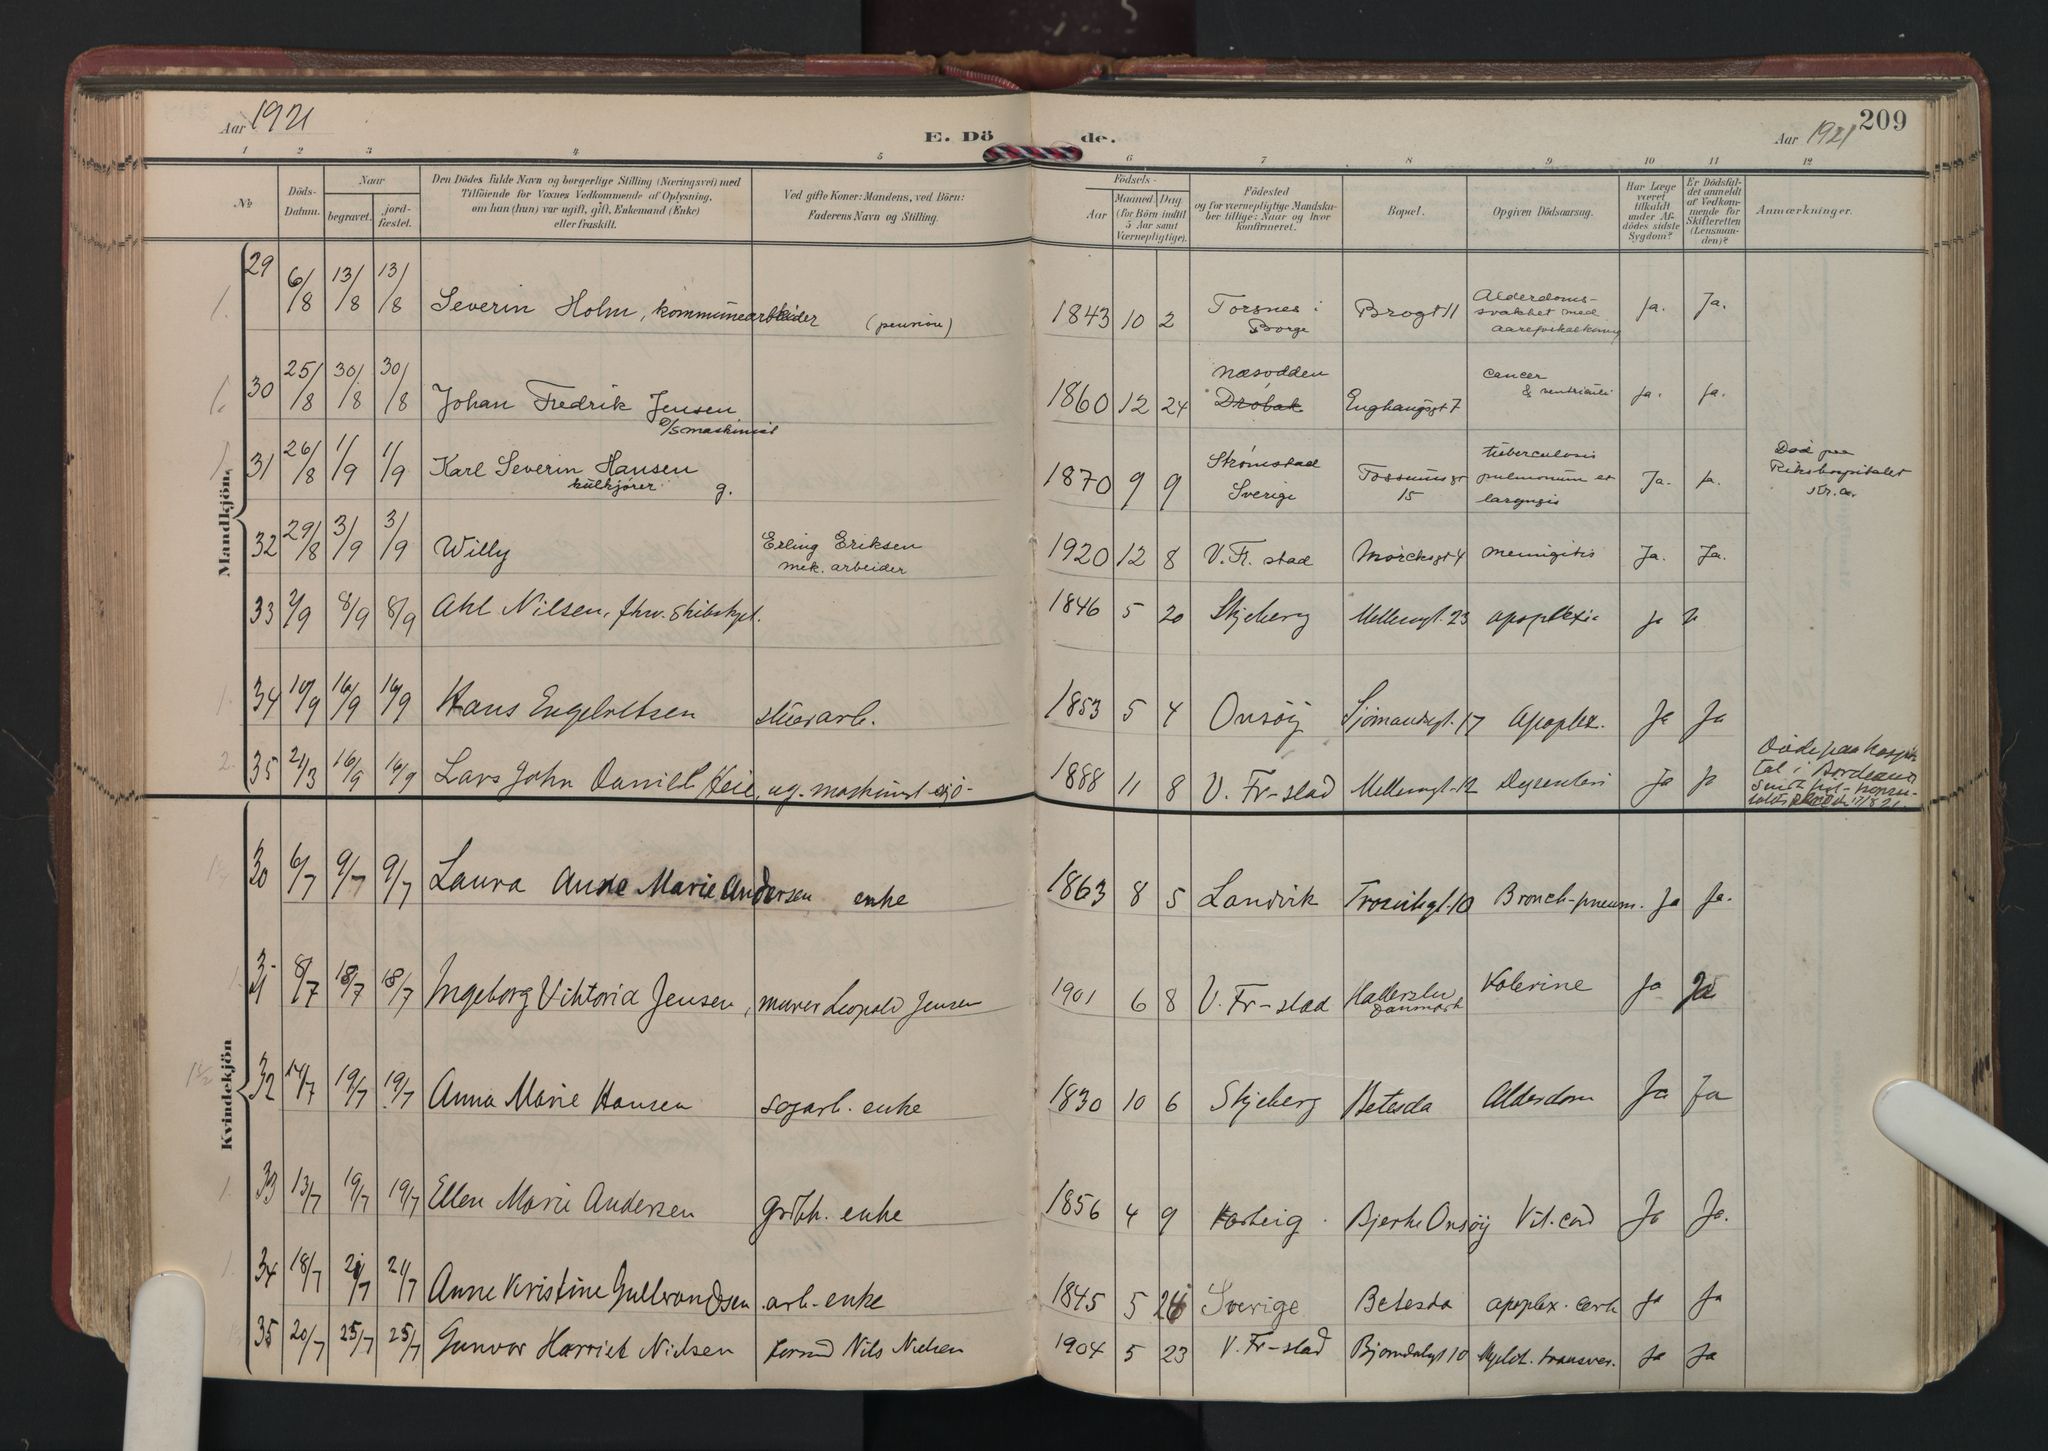 Aar 1921
E. Döde.
Aar 1921
209
1 2 3 4 5 6 7 8 9 10 11 12
No
Döds-Datum.
Naar
begravet.
jord-fæstet.
Den Dödes fulde Navn og borgerlige Stilling (Næringsvei) med
Tilföiende for Voxnes Vedkommende af Oplysning,
om han (hun) var ugift, gift, Enkemand (Enke)
eller fraskilt.
Ved gifte Koner: Mandens, ved Börn:
Faderens Navn og Stilling.
Födsels-
Aar
Maaned Dag
(for Börn indtil
5 Aar samt
Værnepligtige).
Födested
og for værnepligtige Mandsku-
ber tillige: Naar og hvor
konfirmeret.
Bopæl.
Opgiven Dödsaarsag.
Har Læge
været
tilkaldt
under Af-
dödes sidste
Sygdom?
Er Dödsful-
det anmeldt
af Vedkom-
mende for
Skifteretten
(Lensman-
den)?
Anmærkninger.
Mandkjön.
29 6/8 13/8 13/8 Severin Holm, kommunearbeider (pension) 1843 10 2 Torsnes i Borge Brogt 11 Alderdoms-svakhet med Ja. Ja.
30 25/8 30/8 30/8 Johan Fredrik Jensen D/S maskinist 1860 12 24 Næsodden Drøbak Enghaugsgt 7 cancer ventriculi Ja. Ja.
31 26/8 1/9 1/9 Karl Severin Hansen kulkjører g. 1870 9 9 Strømstad Sverige Fossumsgt 15 tuberculosis pulmonum et laryngis Ja. Ja. Død paa Rikshospitalet Kr.a.
32 29/8 3/9 3/9 Willy Erling Eriksen mek. arbeider 1920 12 8 V. Fr. stad Mørcksgt 4 meningitis Ja. Ja.
33 2/9 8/9 8/9 Nilsen, fhv. skibskpt. 1846 5 20 Skjeberg Mellemgt. 23 apoplexi Ja
34 10/9 16/9 16/9 Hans Engebretsen stuerarb. 1853 5 4 Onsöy Sjömandsgt. 17 Apoplex. Ja Ja
35 21/3 16/9 16/9 Lars John Daniel Heie, ug. maskinist 1888 11 8 V. Fr-stad Mellemgt. 12 Dysenteri Ja Ja Döde paa hospital i Bordeaux
Kvindekjön
30 6/7 9/7 9/7 Laura Anne Marie Andersen enke 1863 8 5 Landvik Trosvikgt. 10 Bronch-pneum. Ja Ja.
31 8/7 18/7 18/7 Ingeborg Viktoria Jensen, murer Leopold Jensen 1901 6 8 V. Fr-stad Haderslev Danmark Kolerine Ja Ja
32 14/7 19/7 19/7 Anna Marie Hansen sagarb. enke 1830 10 6 Skjeberg Betesda Alderdom Ja Ja
33 13/7 19/7 19/7 Ellen Marie Andersen enke 1856 4 9 Varteig Bjerke Onsöy Vit. cord Ja Ja.
34 18/7 21/7 21/7 Anne Kristine Gulbrandsen arb. enke 1845 5 26 Sverige Betesda apoplex. cerb Ja Ja
35 20/7 25/7 25/7 Gunvor Harriet Nielsen Nils Nielsen 1904 5 23 V. Fr-stad Bjørndalsgt 10 Myelit. transver. Ja Ja